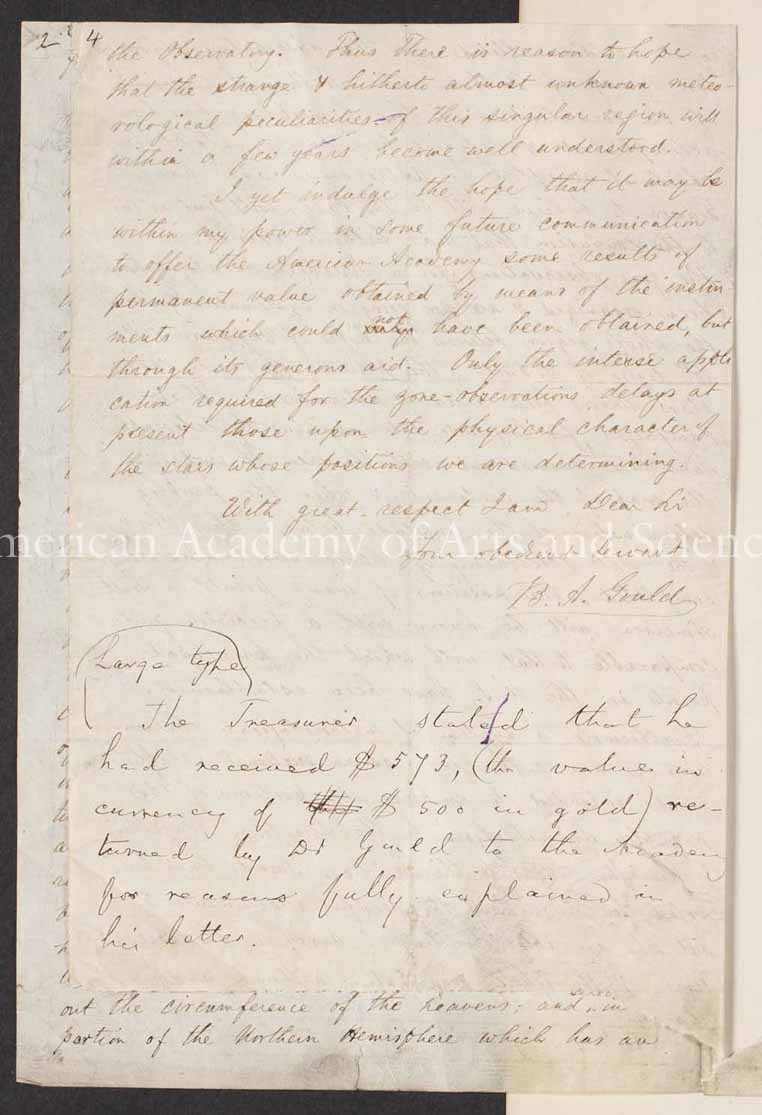 2 4
the Observatory. Thus There is reason to hope
that the strange & hitherto almost unknown meteo-
rological peculiarities of this singular region will
within a few years become well understood.
I yet indulge the hope that it may be
within my power in some future communication
to offer the American Academy some results of
permanent value obtained by means of the instru-
ments which could not have been obtained, but
through its generous aid. Only the intense appli
cation required for the zone-observations delays at
present those upon the physical character of
the stars whose positions we are determining.
With great respect I am Dear Sir
Your obedient servant
B. A. Gould
Large type
The Treasurer stated that he
had received $573, (the value in
currency of $500 in gold) re-
turned by Dr Gould to the Academy
for reasons fully explained in
his letter.
out the circumference of the heavens; and in
portion of the Northern Hemisphere which has an
American Academy of Arts and Scienc